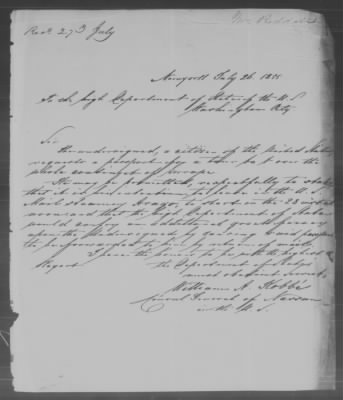 Recd 27 July
New York July 26. 1855
To the high Department of State of the U. S
Washington City
Sir
The undersigned, a citizen of the United States
requests a passport for a tour over the
whole continent of Europe
He may be permitted, respectfully to state
that it is his intention to leave in the U. S.
Mail Steamer Arago, to start on the 28 inst
noon and that the high Department of State
would confer an additional great favor
upon the undersigned by causing said passport
to be forwarded to him by return of mail.
I have the honor to be with the highest
the Department of State's
most obedient servant
William A. Kobbé
Consul General of Nassau
in the U. S.